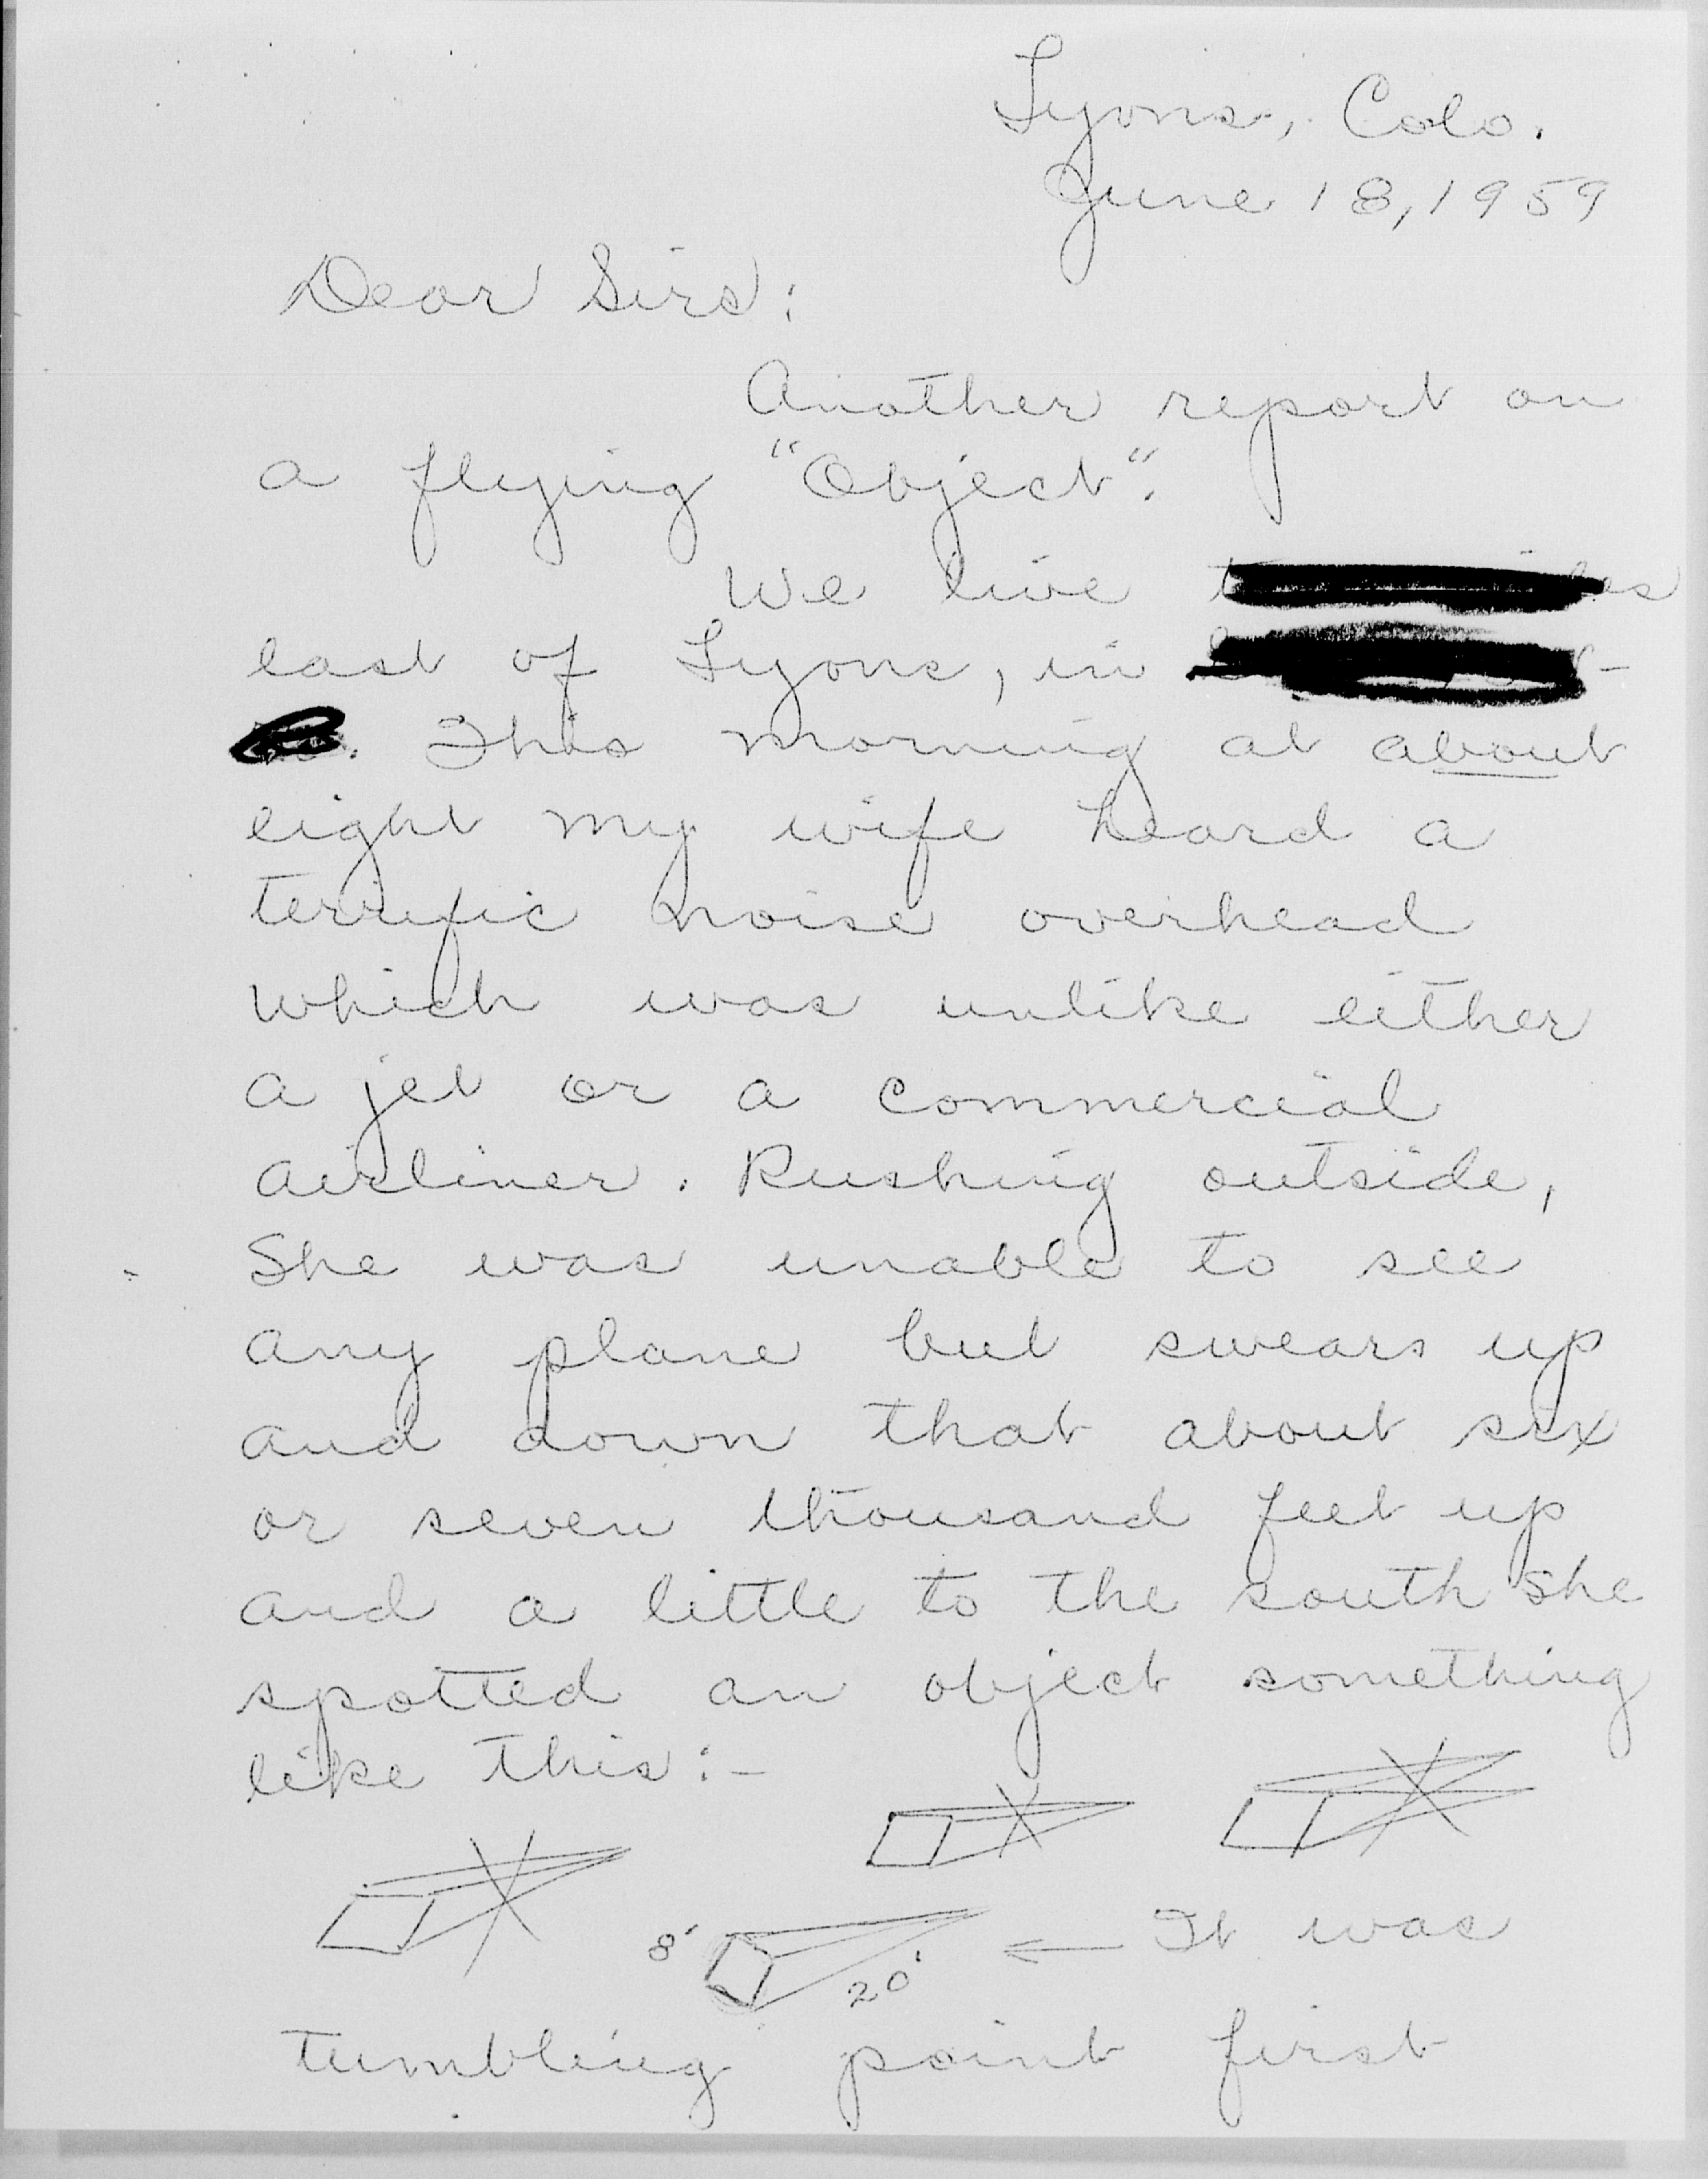 Lyons, Colo.
June 18, 1959
Dear Sirs:
Another report on
a flying "Object".
We live
east of Lyons, in
This morning at about
eight my wife heard a
terrific noise overhead
which was unlike either
a jet or a commercial
airliner. Rushing outside,
She was unable to see
any plane but swears up
and down that about six
or seven thousand feet up
and a little to the south she
spotted an object something
like this:-
8' 20' ← It was
tumbling point first